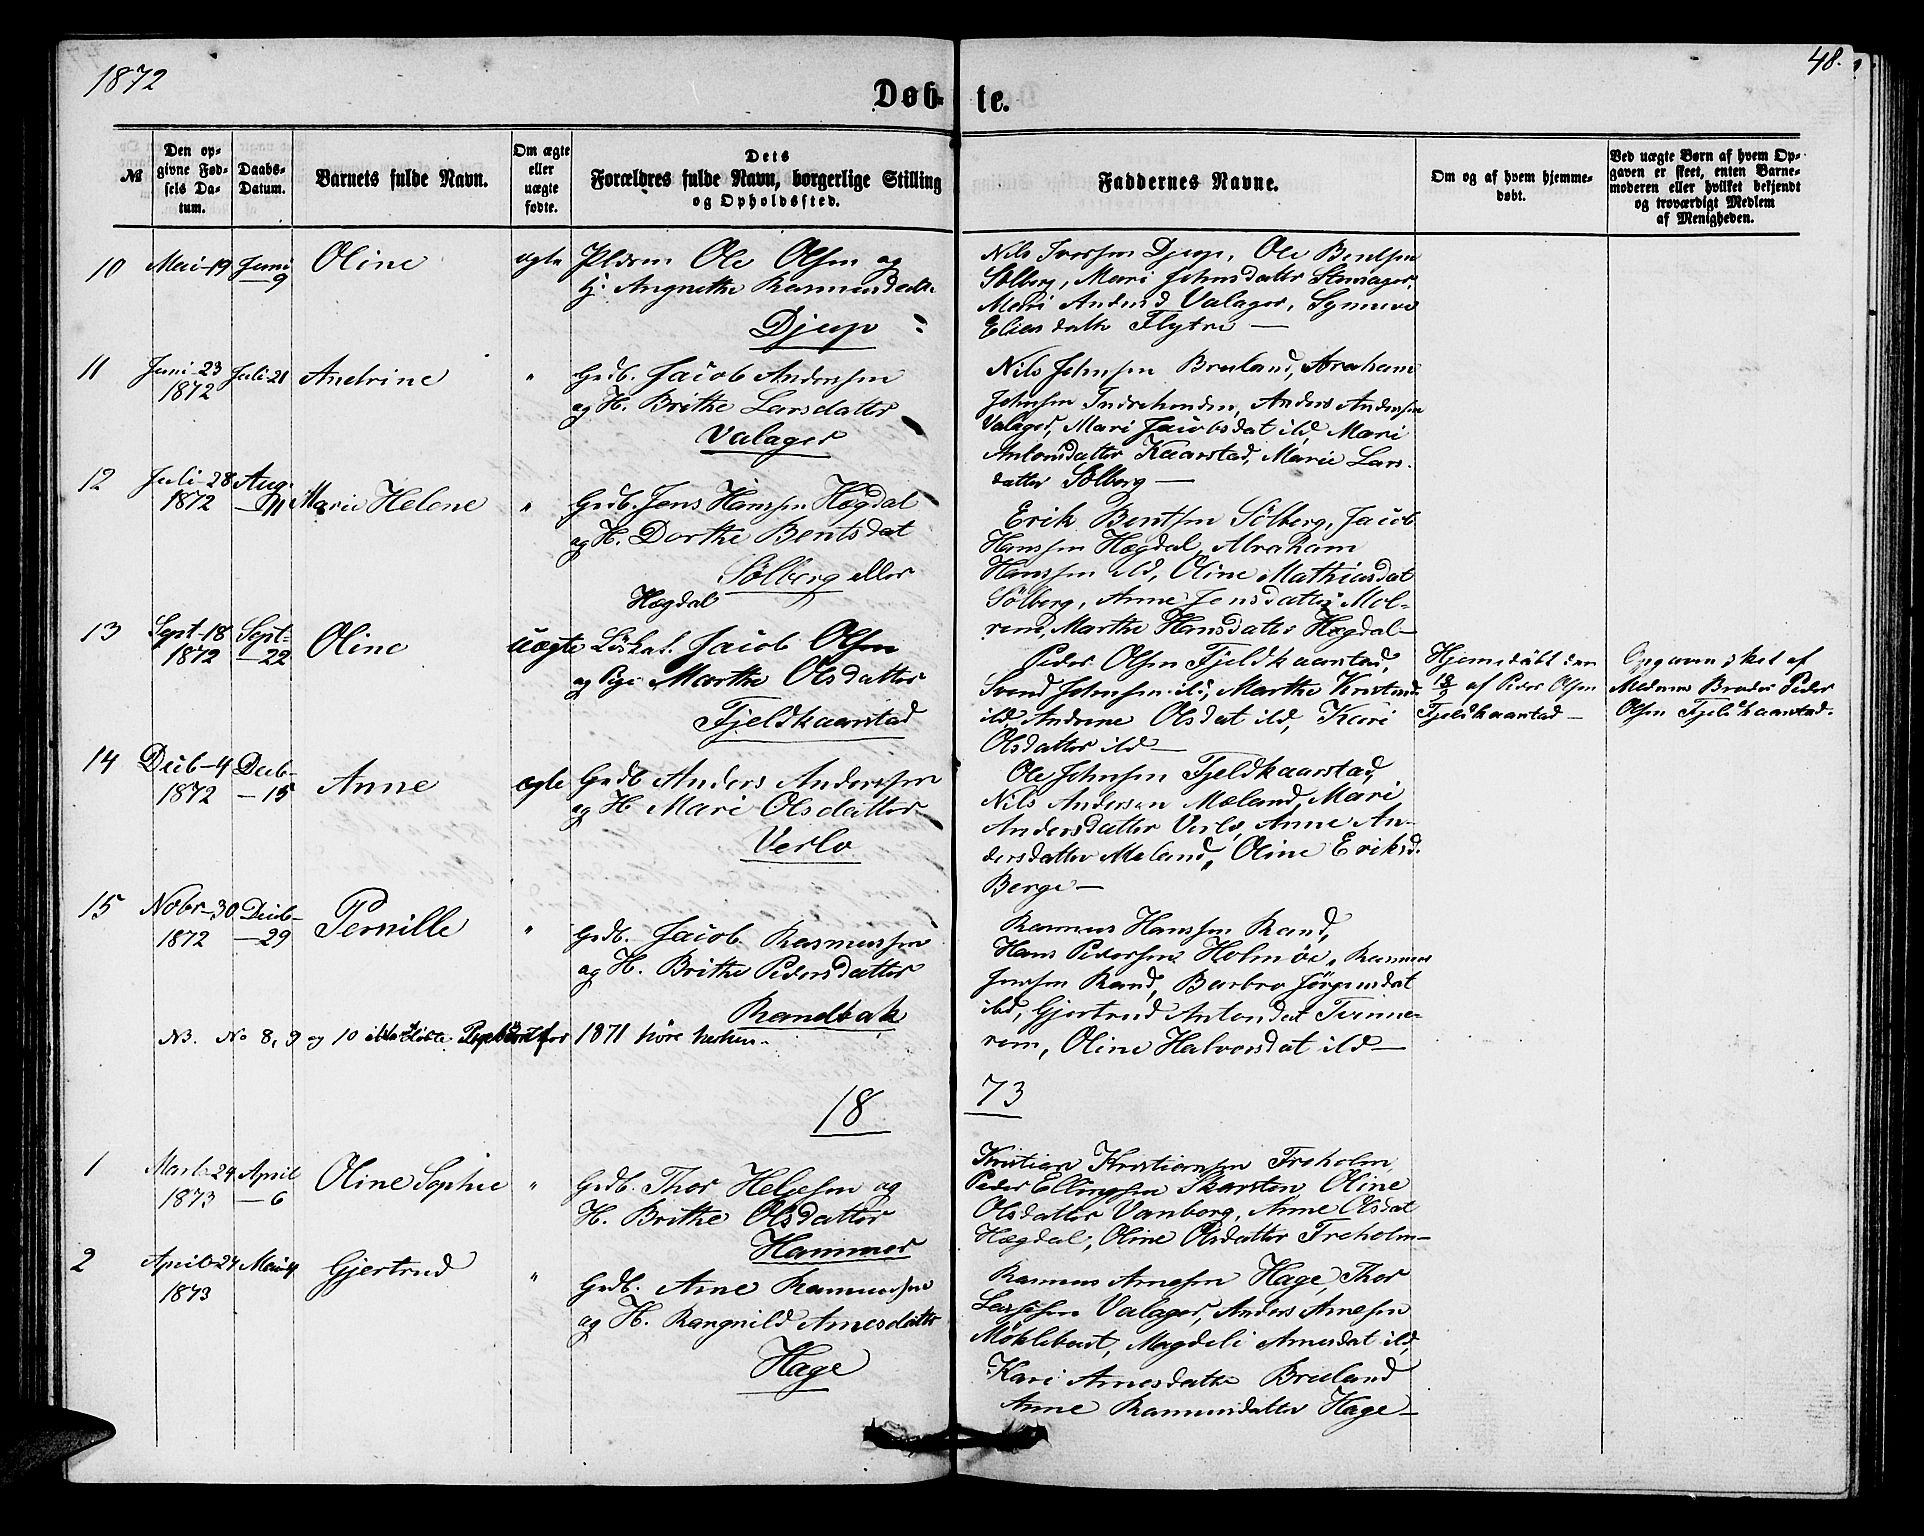 1872
48.
Døb- te.
№
Den op-
givne Fød-
sels Da-
tum.
Daabs-
Datum.
Barnets fulde Navn.
Om ægte
eller
uægte
fødte.
Dets
Forældres fulde Navn, borgerlige Stilling
og Opholdssted.
Faddernes Navne.
Om og af hvem hjemme-
døbt.
Ved uægte Børn af hvem Op-
gaven er skeet, enten Barne-
moderen eller hvilket bekjendt
og troværdigt Medlem
af Menigheden.
10 Mai-19 Juni 9 Oline ægte Ole Olsen og
Rasmusdatt.
Djup
Nils Iversen Djup, Ole Bentsen
Sølberg, Mari Johnsdatter
Mari Andersd Valager, Synneve
Eliasdatter Flytre —
11 Juni-23 Juli-21 Andrine " Grdb. Jacob Anderssen
1872
og H. Brithe Larsdatter
Valager
Nils Johnsen Breland, Abraham
Johnsen Indrehenden, Anders Andersen
Valager, Mari Jacobsdat ild, Mari
Antonsdatter Kaarstad, Marie Lars-
datter Sølberg —
12 Juli-28 Aug. Marie Helene " Grdb. Jens Hanssen Hægdal
1872 — 11
og H. Dorthe Bentsdat
Sølberg eller
Hægdal
Erik Bentsen Sølberg, Jacob
Hanssen Hægdal, Abraham
Hanssen ild, Oline Mathiasdat
Sølberg, Anne Jensdatter Mol-
rem, Marthe Hansdatter Hægdal—
13 Sept-18 Sept- Oline uægte Löskal. Jacob Olsen
1872 — 22
og Pige Marthe Olsdatter
Fjeldkaarstad
Peder Olsen Fjeldkaarstad,
Svend Johnsen ild, Marthe Kristensd.
ild, Andrine Olsdat ild, Kari
Olsdatter ild —
Hjemedöbt den
af Peder Olsen
Fjeldkaarstad —
Opgaven sket af
Moderens Broder Peder
Olsen Fjeldkaarstad.
14 Decb-4 Decb- Anne ægte Grdb Anders Anderssen
1872 — 15
og H Mari Olsdatter
Verlo
Ole Johnsen Fjeldkaarstad,
Nils Andersen Mæland, Mari
Andersdatter Verlo, Anne An-
dersdatter Mæland, Oline Eriksd.
Berge —
15 Nobr-30 Decb- Pernille " Grdb. Jacob Rasmussen
1872 — 29
og H. Brithe Pedersdatter
Randbak
Rasmus Hanssen Rand,
Hans Pedersen Holmøi, Rasmus
Jenssen Rand, Barbro Jörgensdat
ild, Gjertrud Antonsdat Tvinne-
rem, Oline Halvorsdat ild —
NB. No 8, 9 og 10 for 1871 höre herhen.
18 73
1 Marts 24 April Oline Sophie " Grdb. Thor Helgesen og
1873 — 6
H. Brithe Olsdatter
Hammer
Kristian Kristiansen Treholm,
Peder Ellingsen Skarsten, Oline
Olsdatter Vanberg, Anne Olsdat
Hægdal, Oline Olsdatter Treholm—
2 April 24 Mai 4 Gjertrud " Grdb. Arne Rasmussen
1873
og H. Rangnild Arnesdatter
Hage
Rasmus Arnesen Hage, Thor
Larssen Valager, Anders Arnesen
Möklebust, Magdeli Arnesdat ild,
Kari Arnesdatter Breland
Anne Rasmusdatter Hage—